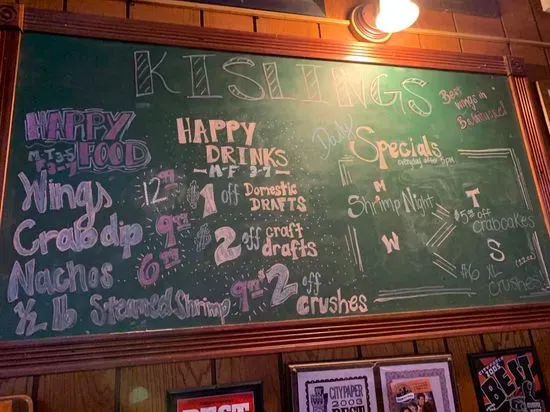 KISLINGS
Best
wings in
Baltimore!
HAPPY
FOOD
HAPPY
DRINKS
M-F 3-7
Daily
Specials
everyday after 5PM
Wings 12.99
Crab dip 9.99
Nachos 6.99
½ lb Steamed Shrimp 9.99
$1 off Domestic
DRAFTS
$2 off craft
drafts
$2 off
crushes
M
Shrimp Night
T
$5 off
crabcakes
W
S
$6 XL
Crushes
CITYPAPER
2003
BEST
BEST
BEST